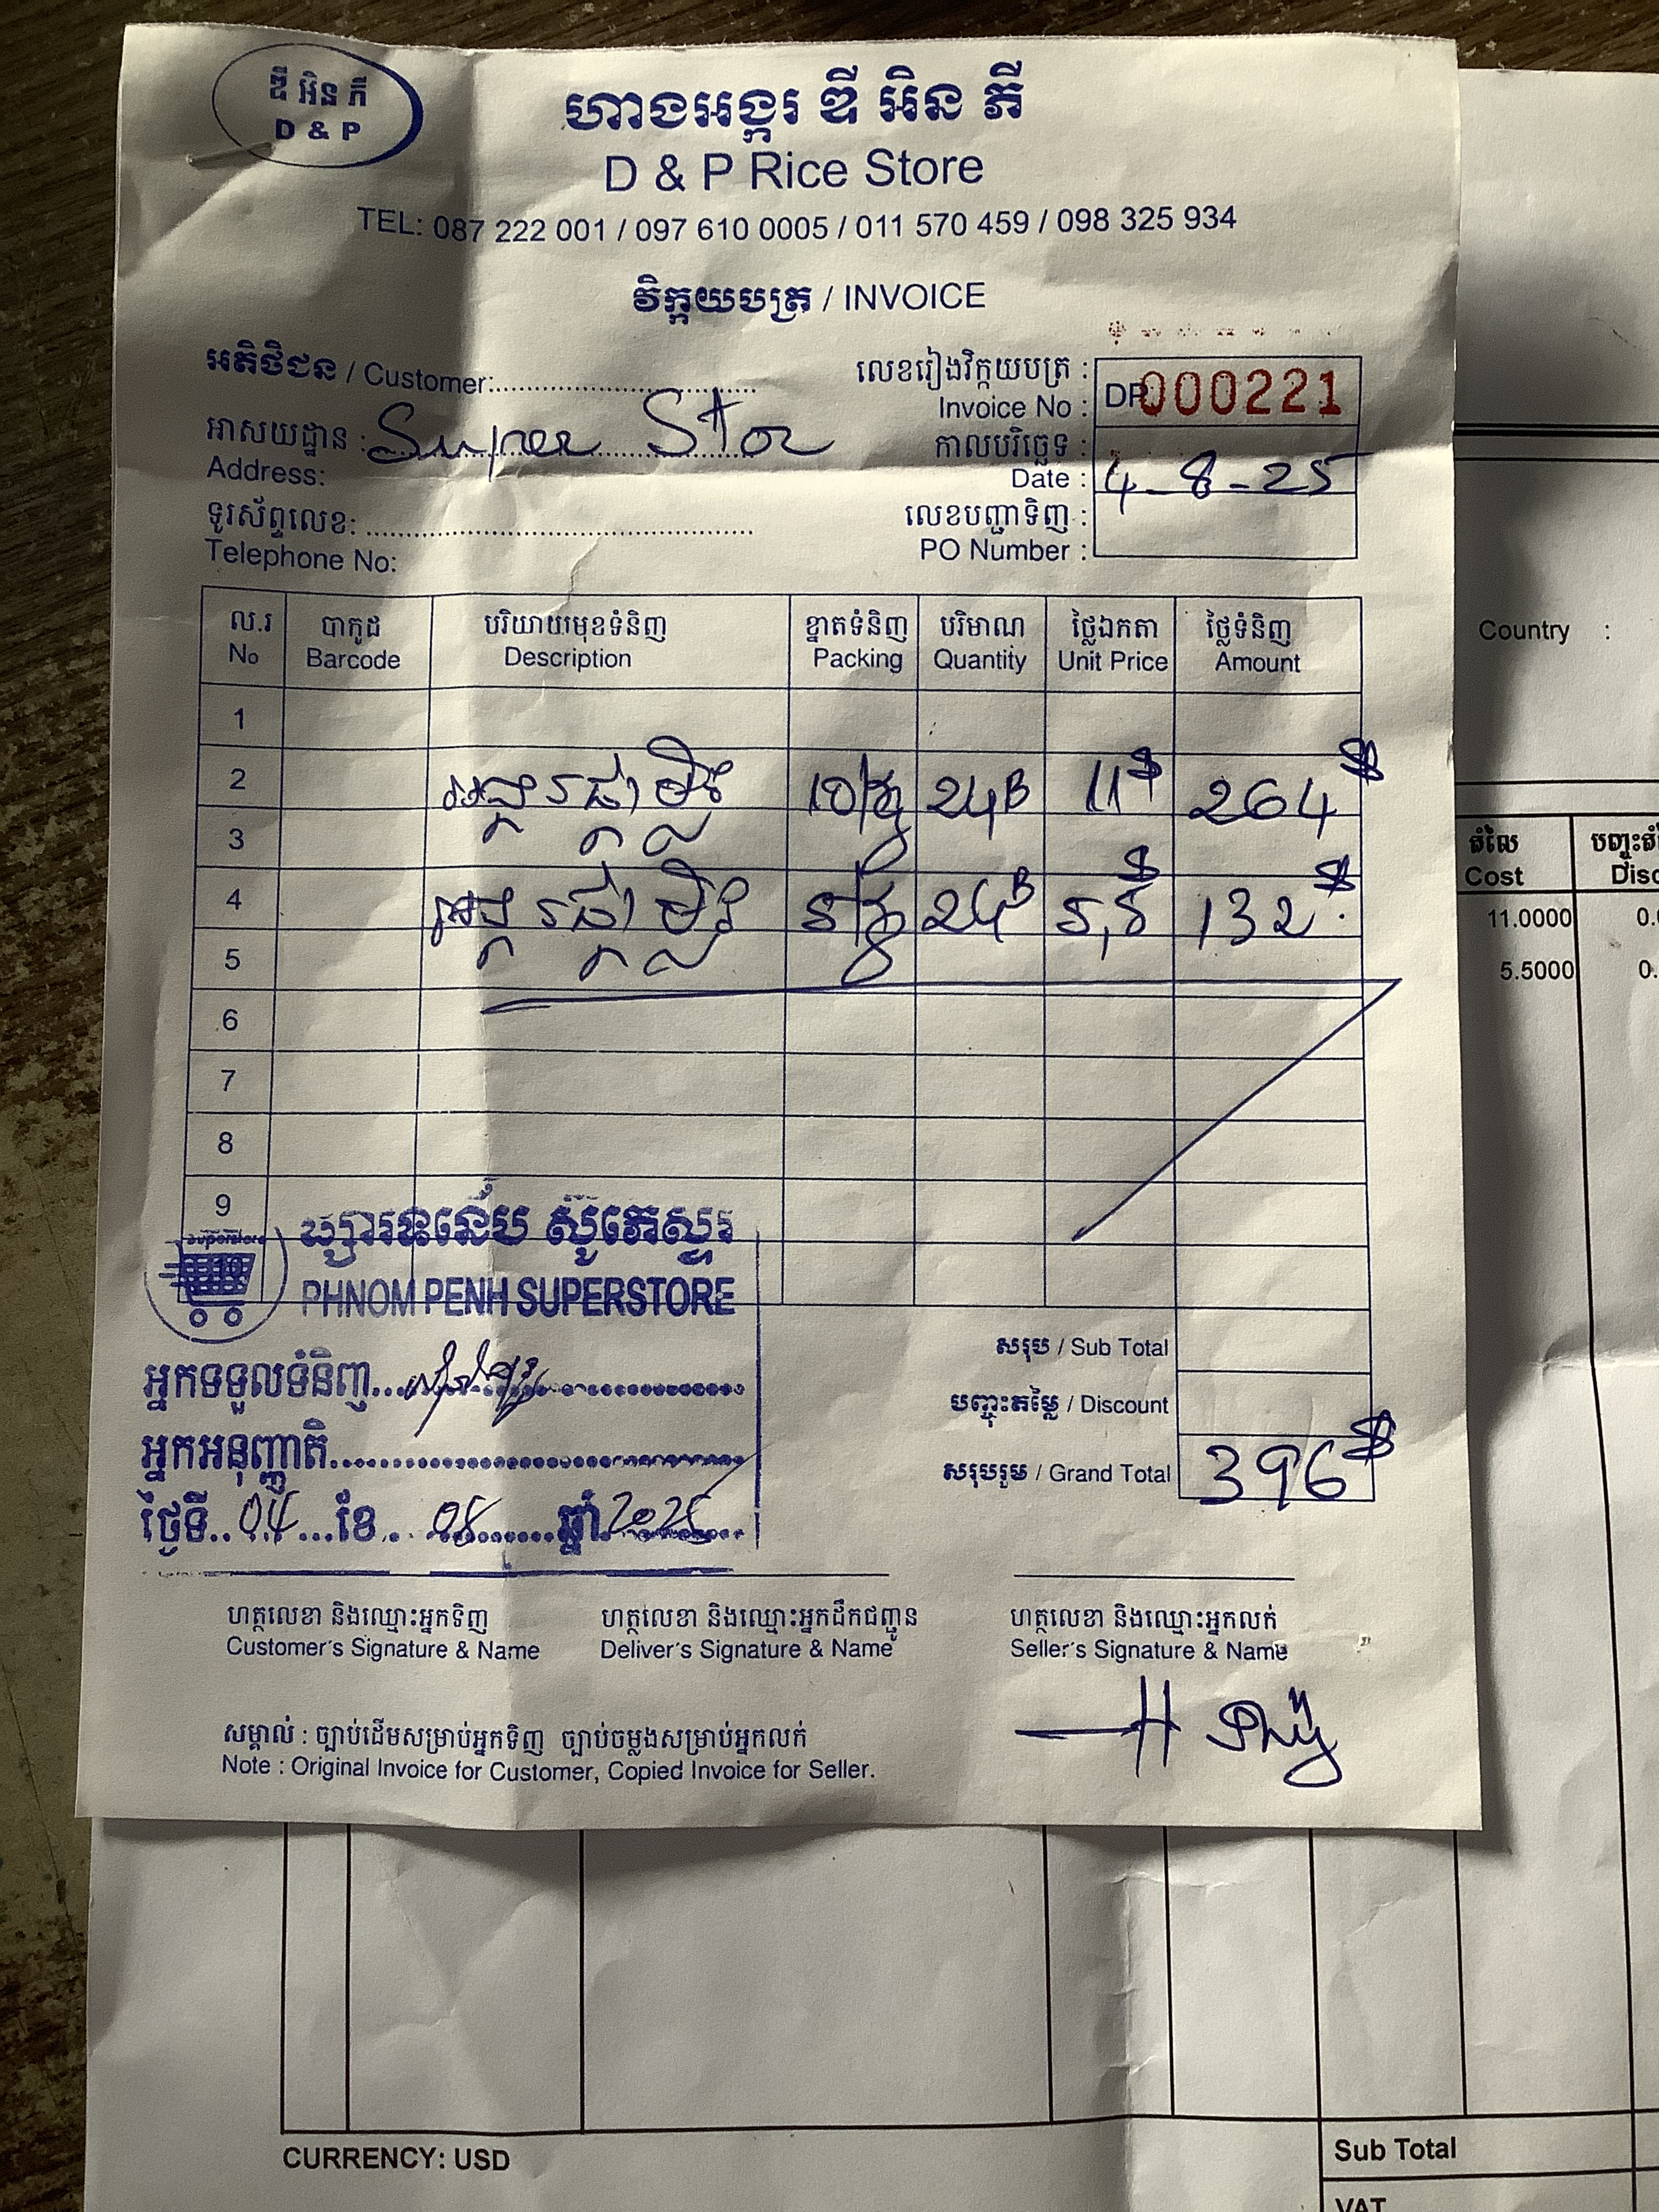 ឌី អិន ភី
D & P
ហាងអង្ករ ឌី អិន ភី
D & P Rice Store
TEL: 087 222 001 / 097 610 0005 / 011 570 459 / 098 325 934
វិក្កយបត្រ / INVOICE
អតិថិជន / Customer:
អាសយដ្ឋាន : Super Stor
Address:
ទូរស័ព្ទលេខ:
Telephone No:
លេខរៀងវិក្កយបត្រ :
Invoice No : DP 000221
កាលបរិច្ឆេទ :
Date : 4-8-25
លេខបញ្ជាទិញ :
PO Number :
ល.រ បាកូដ បរិយាយមុខទំនិញ ខ្នាតទំនិញ បរិមាណ ថ្លៃឯកតា ថ្លៃទំនិញ
No Barcode Description Packing Quantity Unit Price Amount
1
2 អង្ករផ្កាម្លិះ 10គ្ 24B 11$ 264$
3
4 អង្ករផ្កាម្លិះ 5គ្ 24B 5,5$ 132$
5
6
7
8
9
10
Superstore
ផ្សារភ្នំពេញ ស៊ូភើស្ទ័រ
PHNOM PENH SUPERSTORE
អ្នកទទួលទំនិញ
អ្នកអនុញ្ញាតិ
ថ្ងៃទី 04 ខែ 08 ឆ្នាំ 2025
សរុប / Sub Total
បញ្ចុះតម្លៃ / Discount
សរុបរួម / Grand Total 396$
ហត្ថលេខា និងឈ្មោះអ្នកទិញ
Customer's Signature & Name
ហត្ថលេខា និងឈ្មោះអ្នកដឹកជញ្ជូន
Deliver's Signature & Name
ហត្ថលេខា និងឈ្មោះអ្នកលក់
Seller's Signature & Name
សម្គាល់ : ច្បាប់ដើមសម្រាប់អ្នកទិញ ច្បាប់ចម្លងសម្រាប់អ្នកលក់
Note : Original Invoice for Customer, Copied Invoice for Seller.
Country :
តំលៃ
Cost
11.0000
5.5000
CURRENCY: USD
Sub Total
VAT